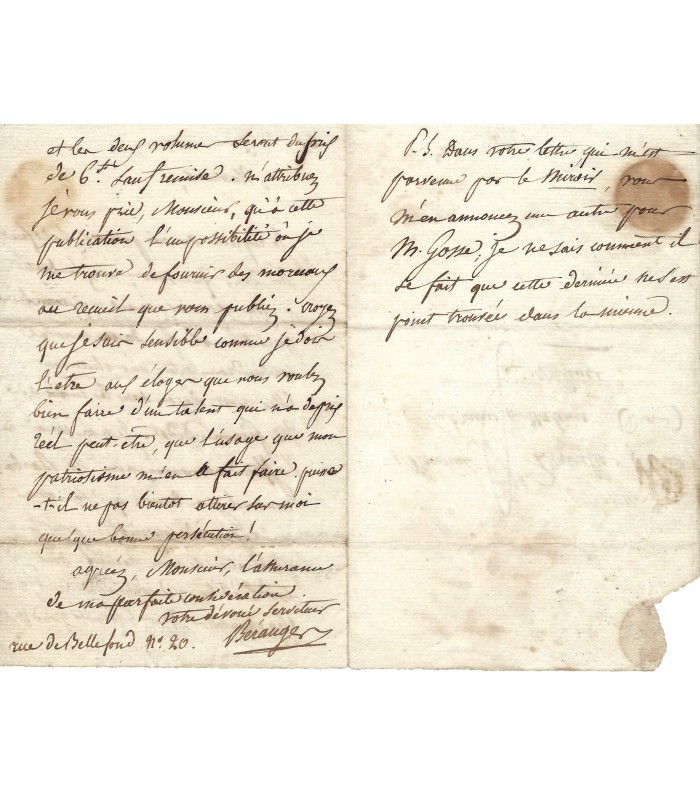 et les deux volumes seront du prix
de 6.fr sauf remise. n'attribuez
je vous prie, Monsieur, qu'à cette
publication l'impossibilité où je
me trouve de fournir des morceaux
au recueil que vous publiez. croyez
que je suis sensible comme je dois
l'être aux éloges que vous voulez
bien faire d'un talent qui n'a de prix
réel peut-être, que l'usage que mon
patriotisme m'en a fait faire. puisse
-t-il ne pas bientôt attirer sur moi
quelque bonne persécution!
agréez, Monsieur, l'assurance
de ma parfaite considération.
votre dévoué serviteur
Béranger
rue de Bellefond No. 20.
P.S. Dans votre lettre qui m'est
parvenue par le Miroir, vous
m'en annoncez une autre pour
M. Gosse; je ne sais comment il
se fait que cette dernière ne s'est
point trouvée dans la mienne.